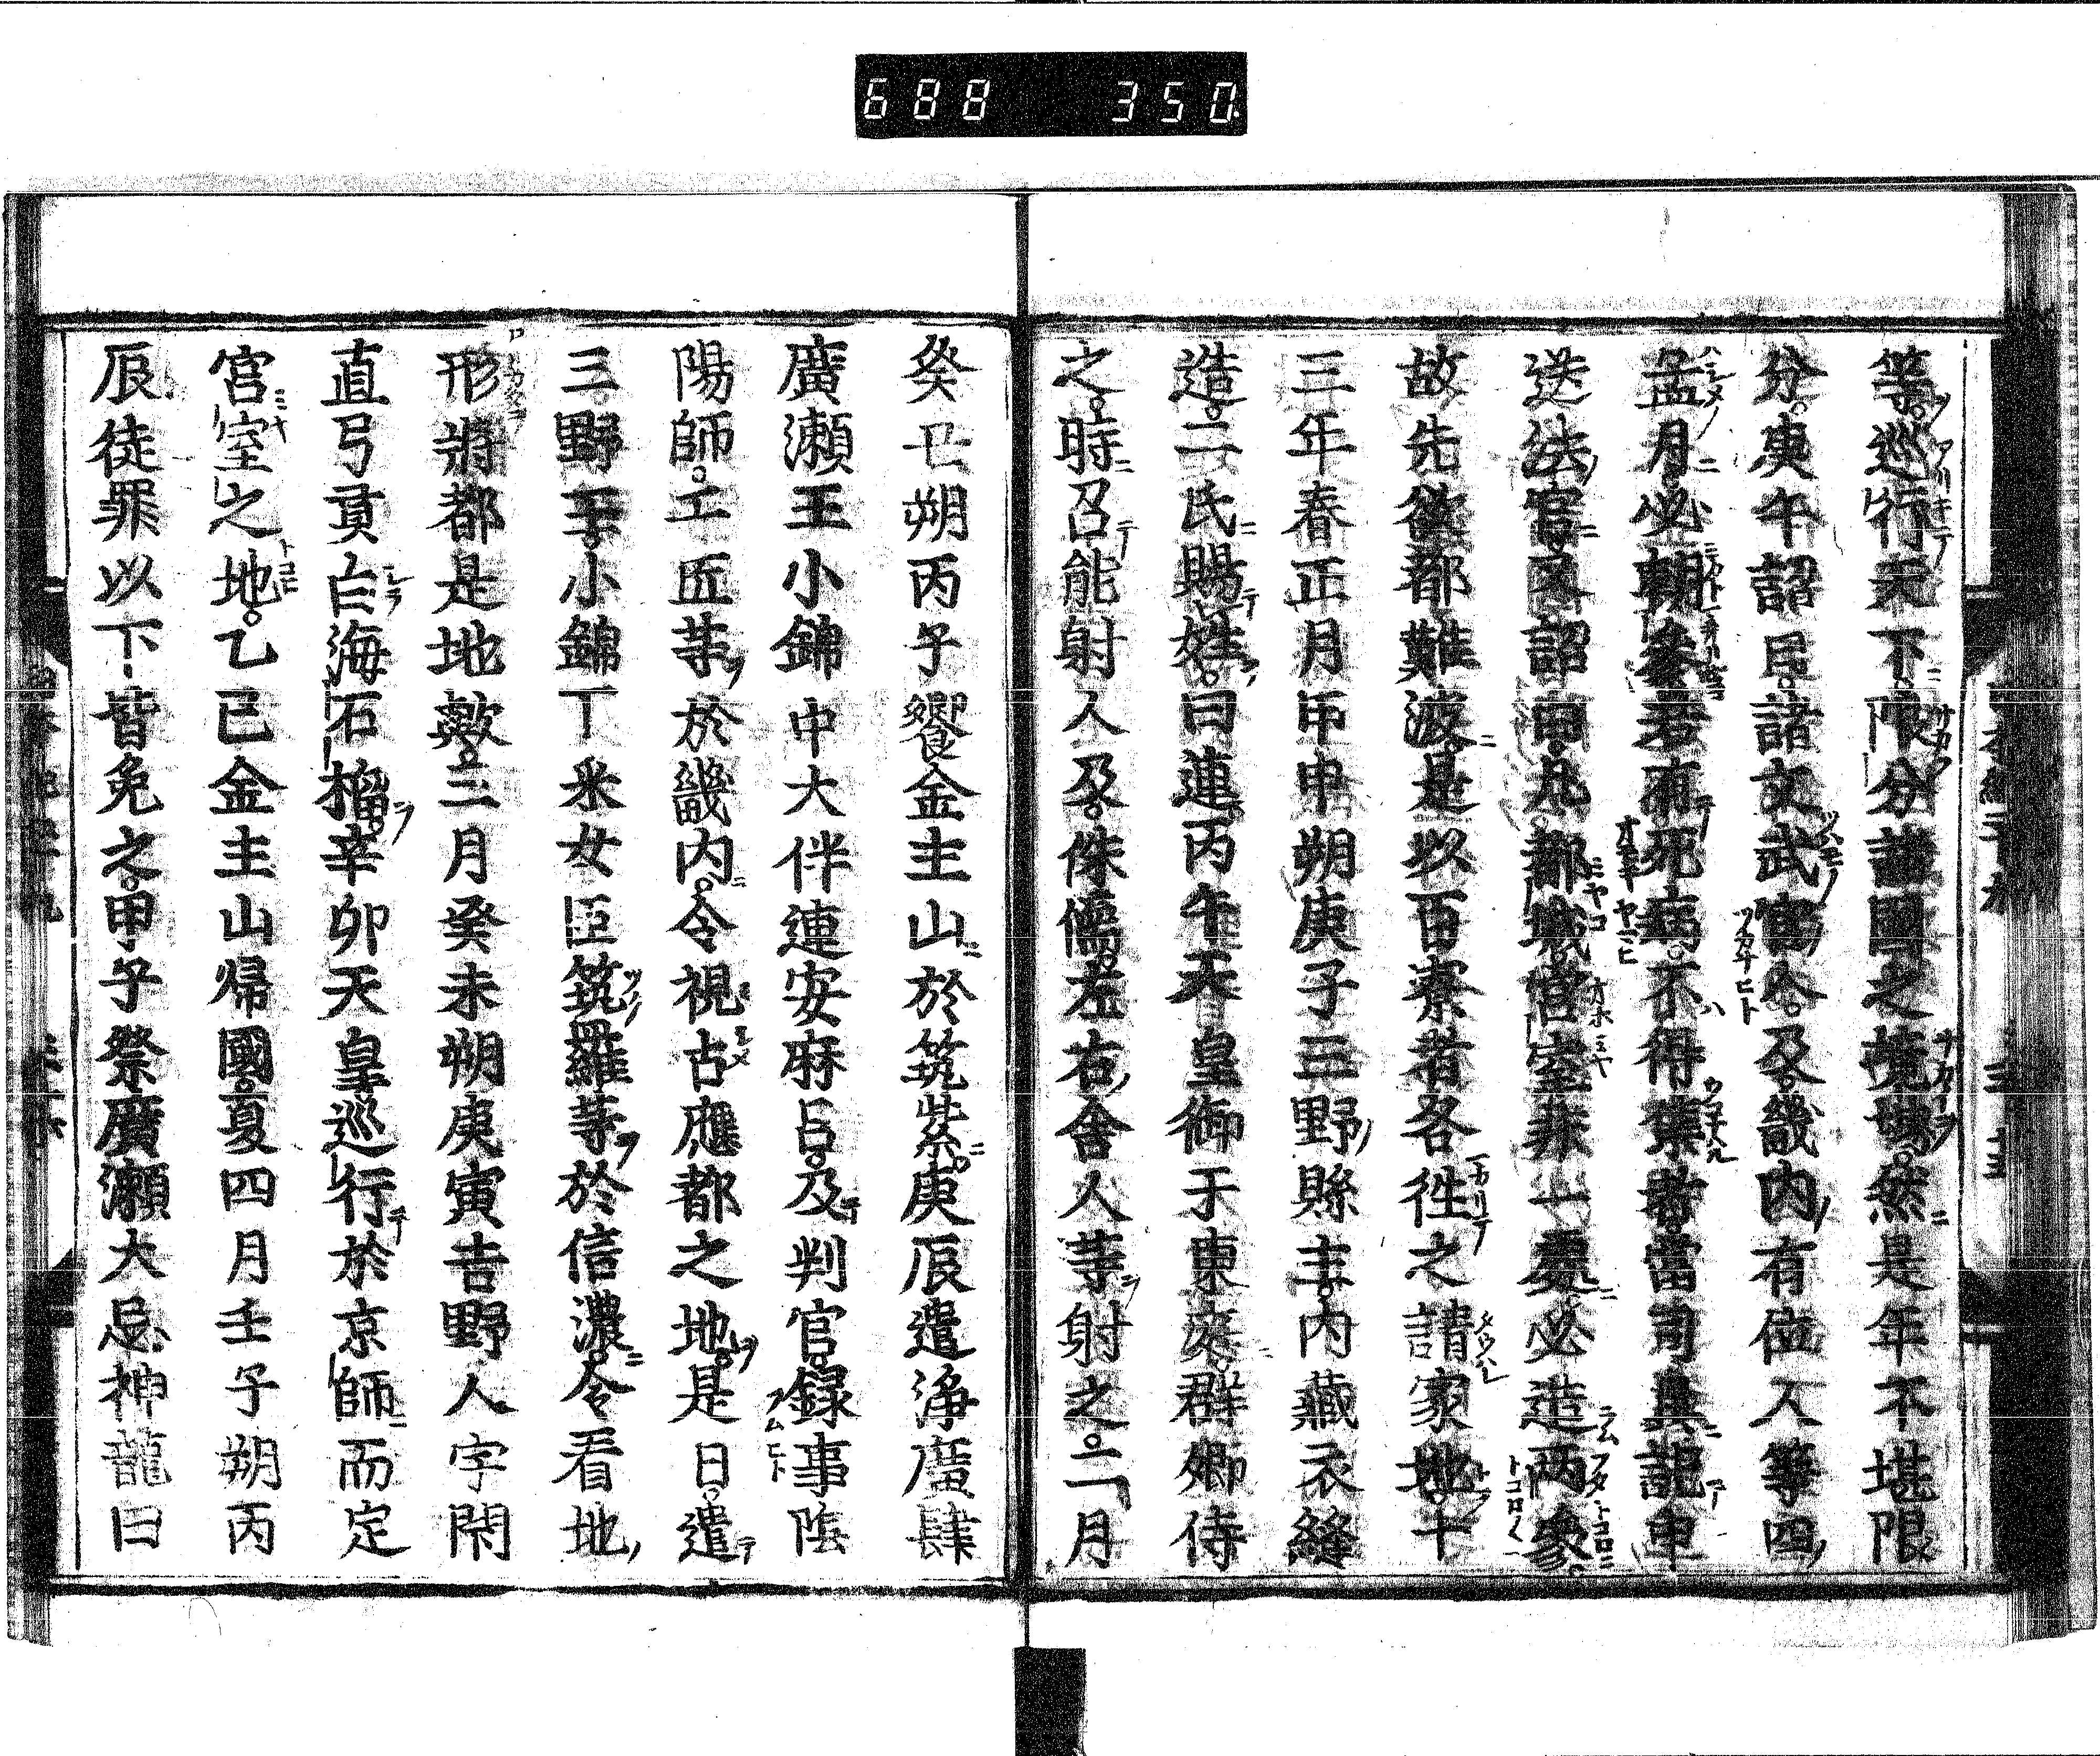 688 350
等巡行天下限分諸國之境堺然是年不堪限
分庚午詔曰諸文武官人及畿内有位人等四
孟月必朝參若有死病不得集者當司具記申
送法官又詔曰凡都城宮室非一處必造兩參
故先欲都難波是以百寮者各徃之請家地十
三年春正月甲申朔庚子三野縣主内藏衣縫
造二氏賜姓曰連丙午天皇御于東庭群卿侍
之時召能射人及侏儒左右舍人等射之二月
癸丑朔丙子饗金主山於筑紫庚辰遣淨廣肆
廣瀬王小錦中大伴連安麻呂及判官録事陰
陽師工匠等於畿内令視占應都之地是日遣
三野王小錦下采女臣筑羅等於信濃令看地
形將都是地歟三月癸未朔庚寅吉野人宇閇
直弓貢白海石榴辛卯天皇巡行於京師而定
宮室之地乙巳金主山帰國夏四月壬子朔丙
辰徒罪以下皆免之甲子祭廣瀬大忌神龍田